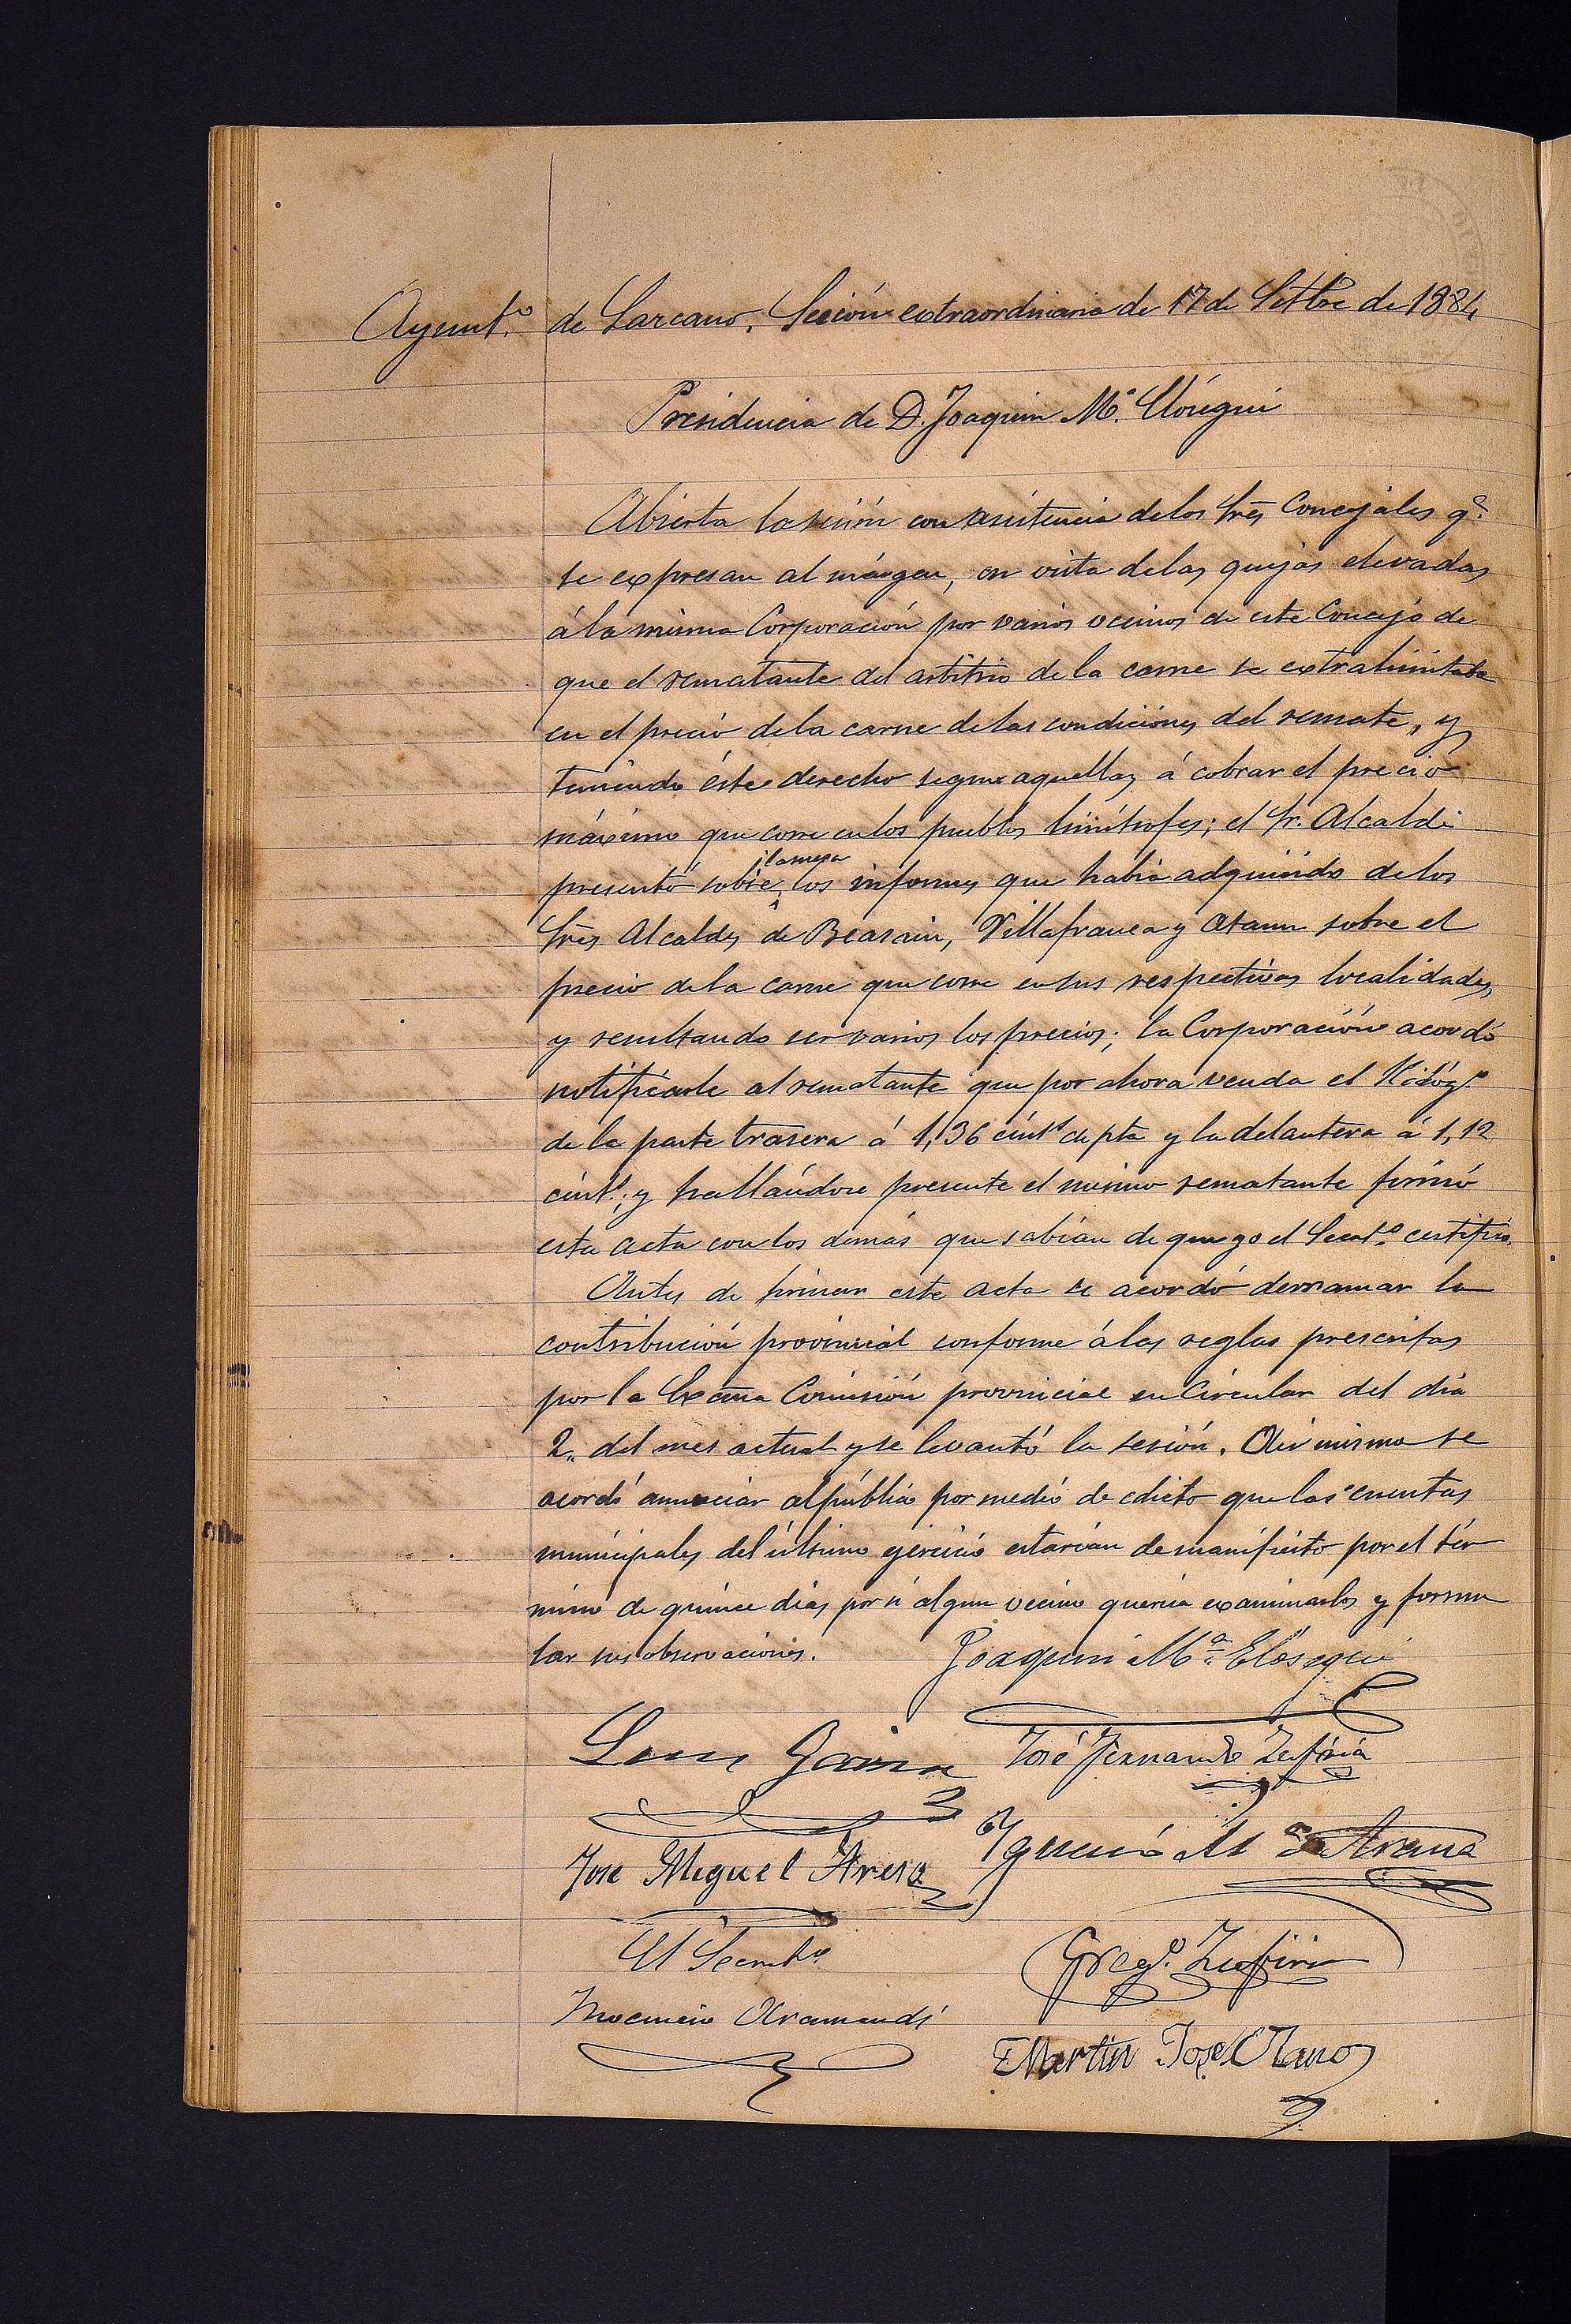 Ayunt.º de Lazcano. Sesión extraordinaria de 17 de Setbre de 1884
Presidencia de D. Joaquin M.ª Elósegui
Abierta la sesión con asistencia de los Srēs Concejáles q.e
se expresan al márgen, en vista de las quejas elevadas
á la misma Corporación por varios vecinos de este Concejo de
que el rematante del arbitrio de la carne se extralimitaba
en el precio de la carne de las condiciónes del remate, y
teniendo éste derecho segun aquellas á cobrar el precio
máximo que corre en los pueblos limítrofes; el Sr. Alcalde
presentó sobre la mesa los informes que habia adquirido de los
Srēs Alcaldes de Beasain, Villafranca y Ataun sobre el
precio de la carne que corre en sus respectivas localidades,
y resultando ser varios los precios; la Corporación acordó
notificarle al rematante que por ahora venda el Kilóg.º
de la parte trasera á 1,36 cint.s de pta y la delantera á 1,12
cint.s; y hallándose presente el mismo rematante firmó
esta acta con los demás que sabían de que yo el Secret.º certifico.
Antes de firmar este acta se acordó derramar la
contribución provincial conforme á las reglas prescritas
por la Excma Comisión provincial en Circular del dia
2,, del mes actual y se levantó la sesión. Asi mismo se
acordó anunciar al público por medio de edicto que las cuentas
municipales del último ejercicio estarian de manifiesto por el tér
mino de quince dias por si algun vecino queria examinarlos y formu
lar sus observaciones. Joaquin M.ª Elósegui
Luis Garin José Fernando Zufiria
José Miguel Aresa Ygnacio M.ª de Arana
El Secret.º Greg.º Zufiria
Inocencio Aramendi
Martin José Olano